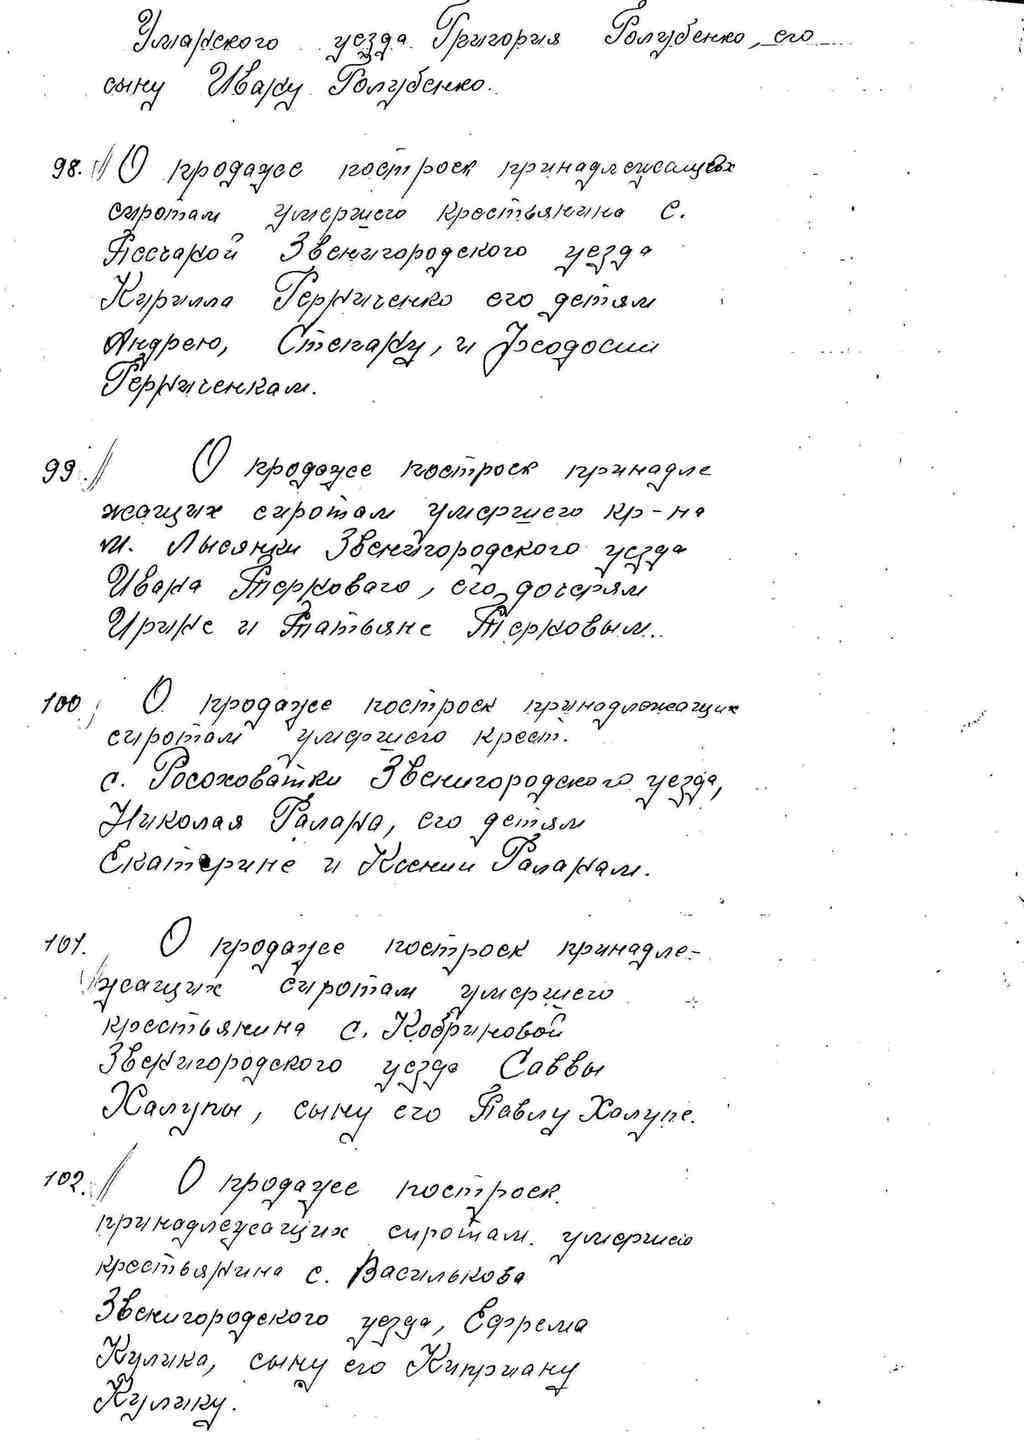 Уманского уезда Григория Голубенко, его
сыну Ивану Голубенко.
98. О продаже построек принадлежащих
сиротам умершего крестьянина с.
Песчаной Звенигородского уезда
Кирилла Герниченко его детям
Андрею, Степану, и Феодосии
Герниченкам.
99. О продаже построек принадле
жащих сиротам умершего кр-на
м. Лысянки Звенигородского уезда
Ивана Терноваго, его дочерям
Ирине и Татьяне Терновым.
100. О продаже построек принадлежащих
сиротам умершего крест.
с. Росоховатки Звенигородского уезда,
Николая Галана, его детям
Екатерине и Ксении Галанам.
101. О продаже построек принадле-
жащих сиротам умершего
крестьянина с. Кобриновой
Звенигородского уезда Саввы
Халупы, сыну его Павлу Халупе.
102. О продаже построек
принадлежащих сиротам умершего
крестьянина с. Василькова
Звенигородского уезда, Ефрема
Кулика, сыну его Киприану
Кулику.